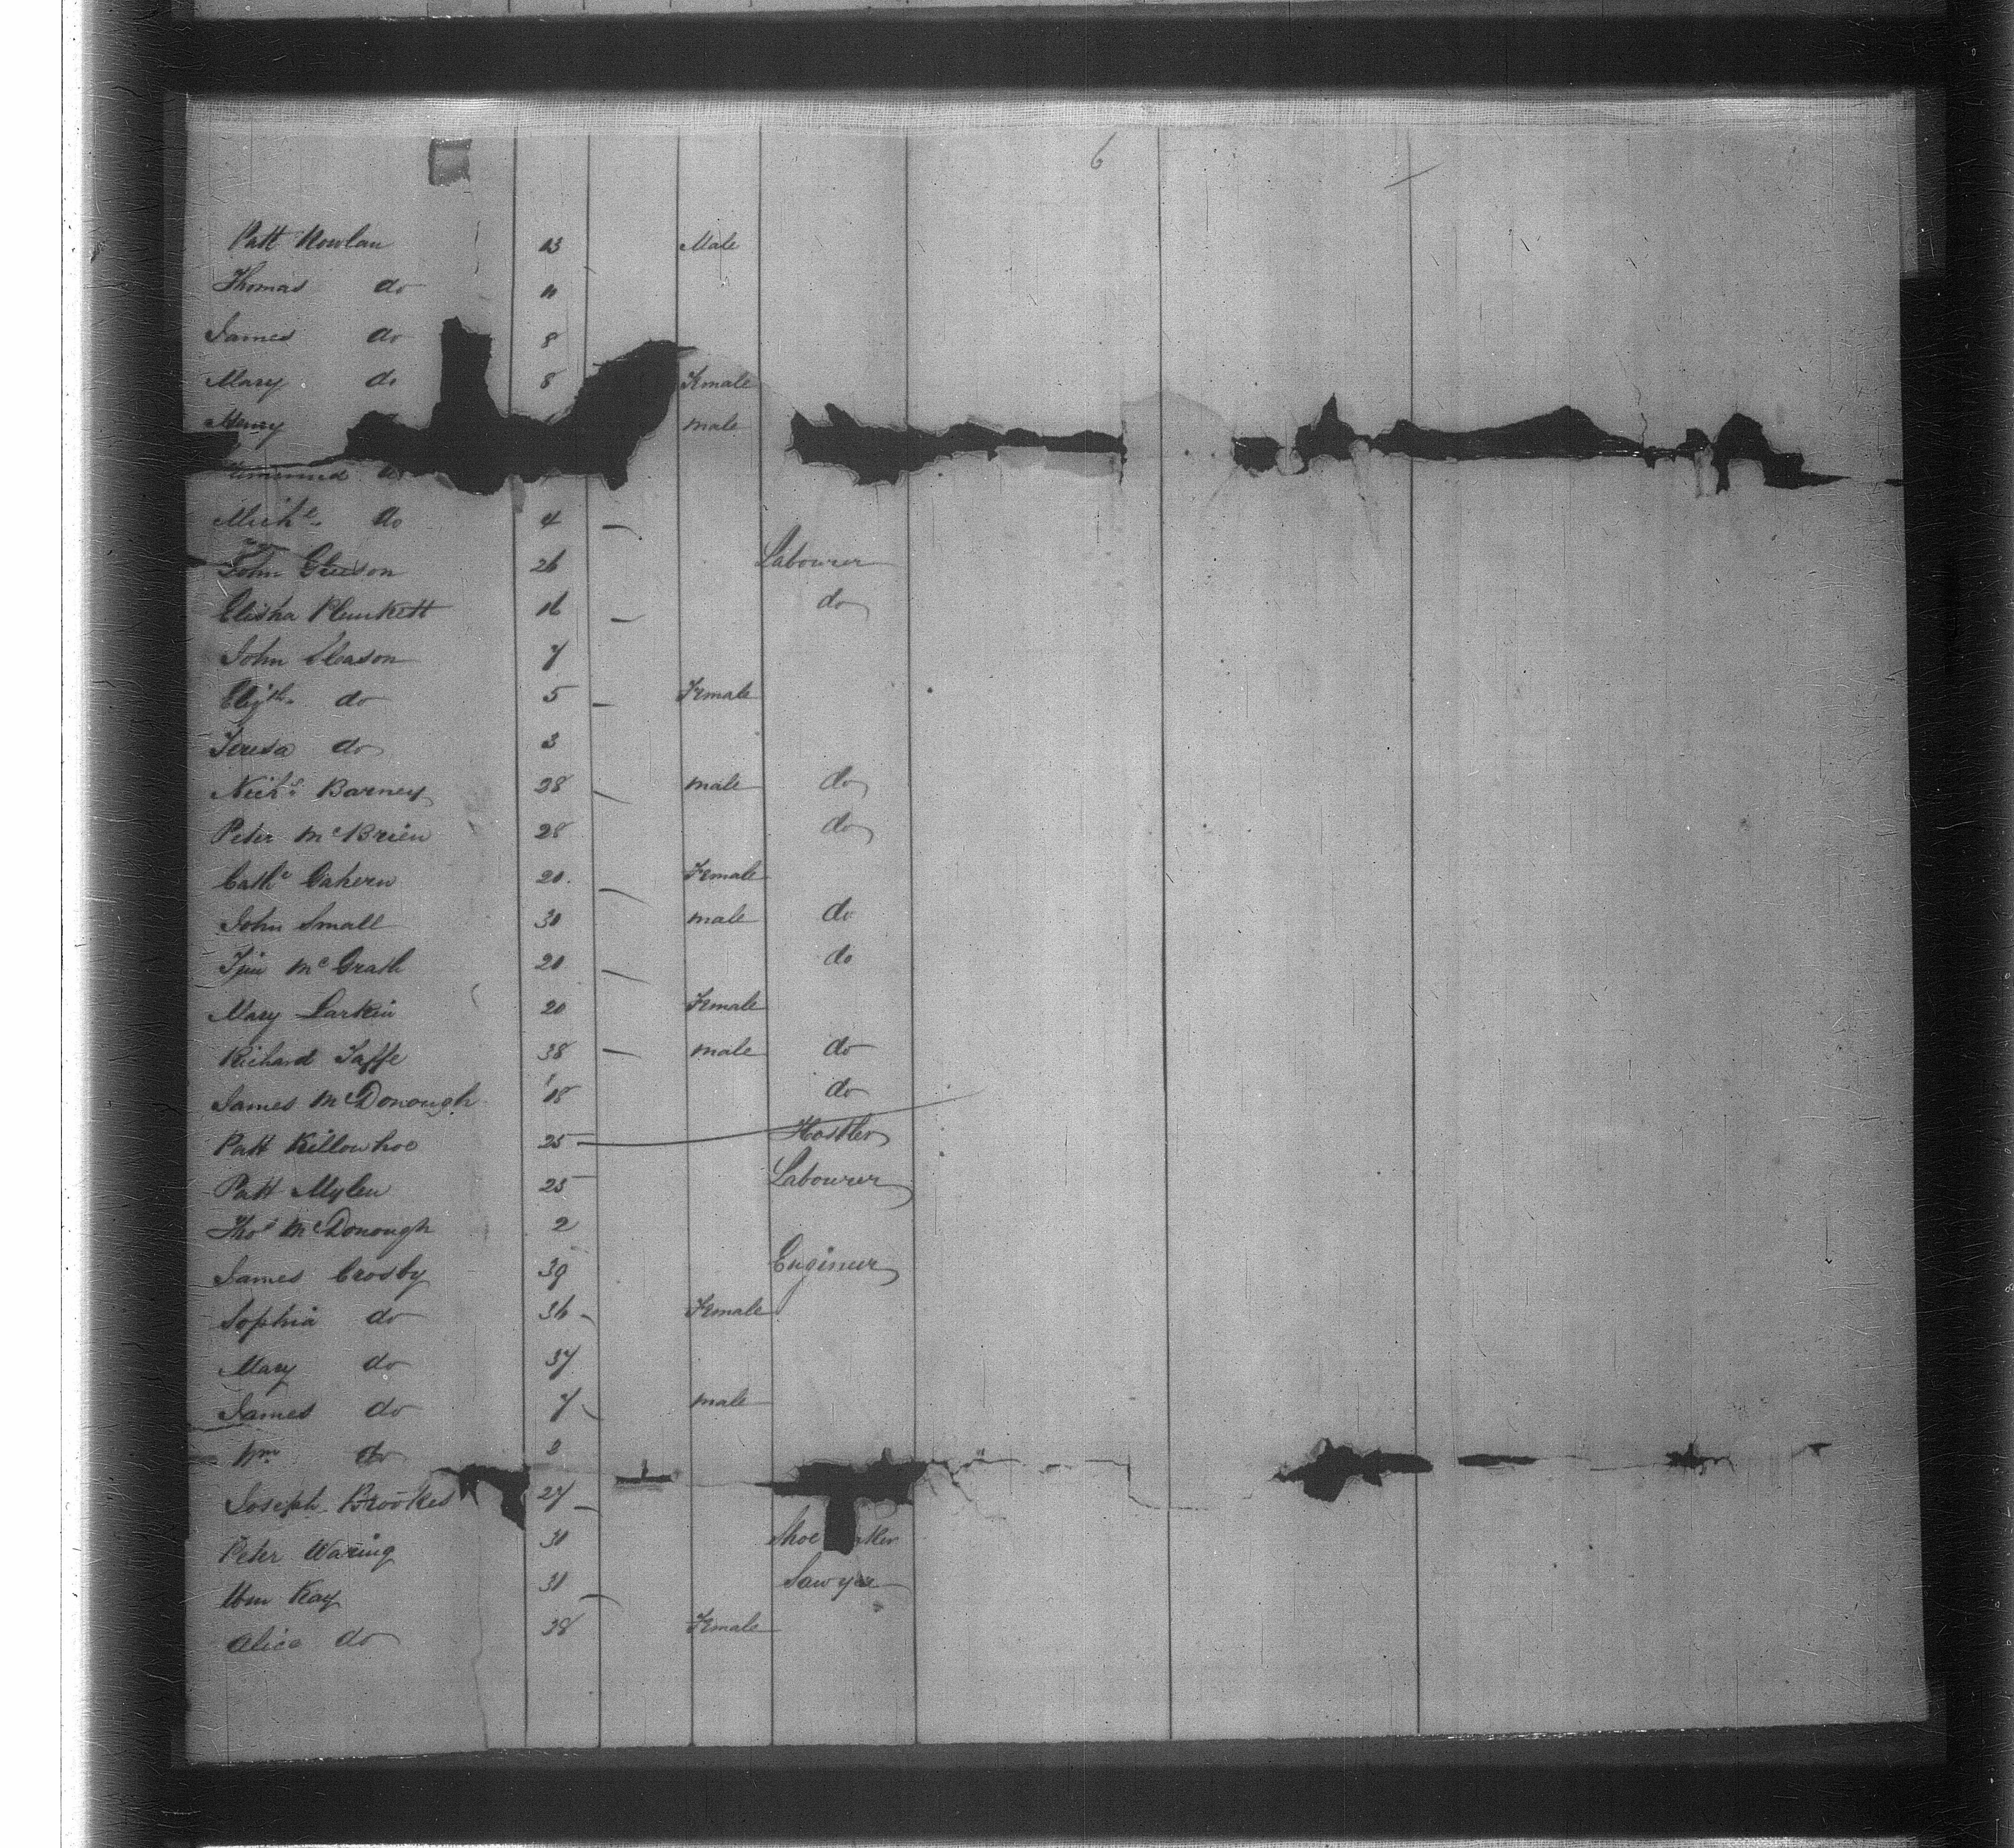 6
Patt Nowlan 13 Male
Thomas do 11
James do 8
Mary do 8 Female
Henry male
do
Michl. do 4
John Gleeson 26 Labourer
Elisha Plunkett 16 do
John Gleason 7
Elizth. do 5 Female
Teresa do 3
Nichs. Barney 28 male do
Peter McBrien 28 do
Cathe Gahern 20. Female
John Small 30 male do
Tim McGrath 20 do
Mary Larkin 20 Female
Richard Taffe 38 male do
James McDonough 18 do
Patt Killowhoe 25 Hostler
Patt Mylen 25 Labourer
Thos McDonough 2
James Crosby 39 Engineer
Sophia do 36 Female
Mary do 37
James do 7 male
Wm. do 2
Joseph Brookes 27
Peter Waring 30 Shoe aker
Wm Kay 30 Sawyer
Alice do 28 Female